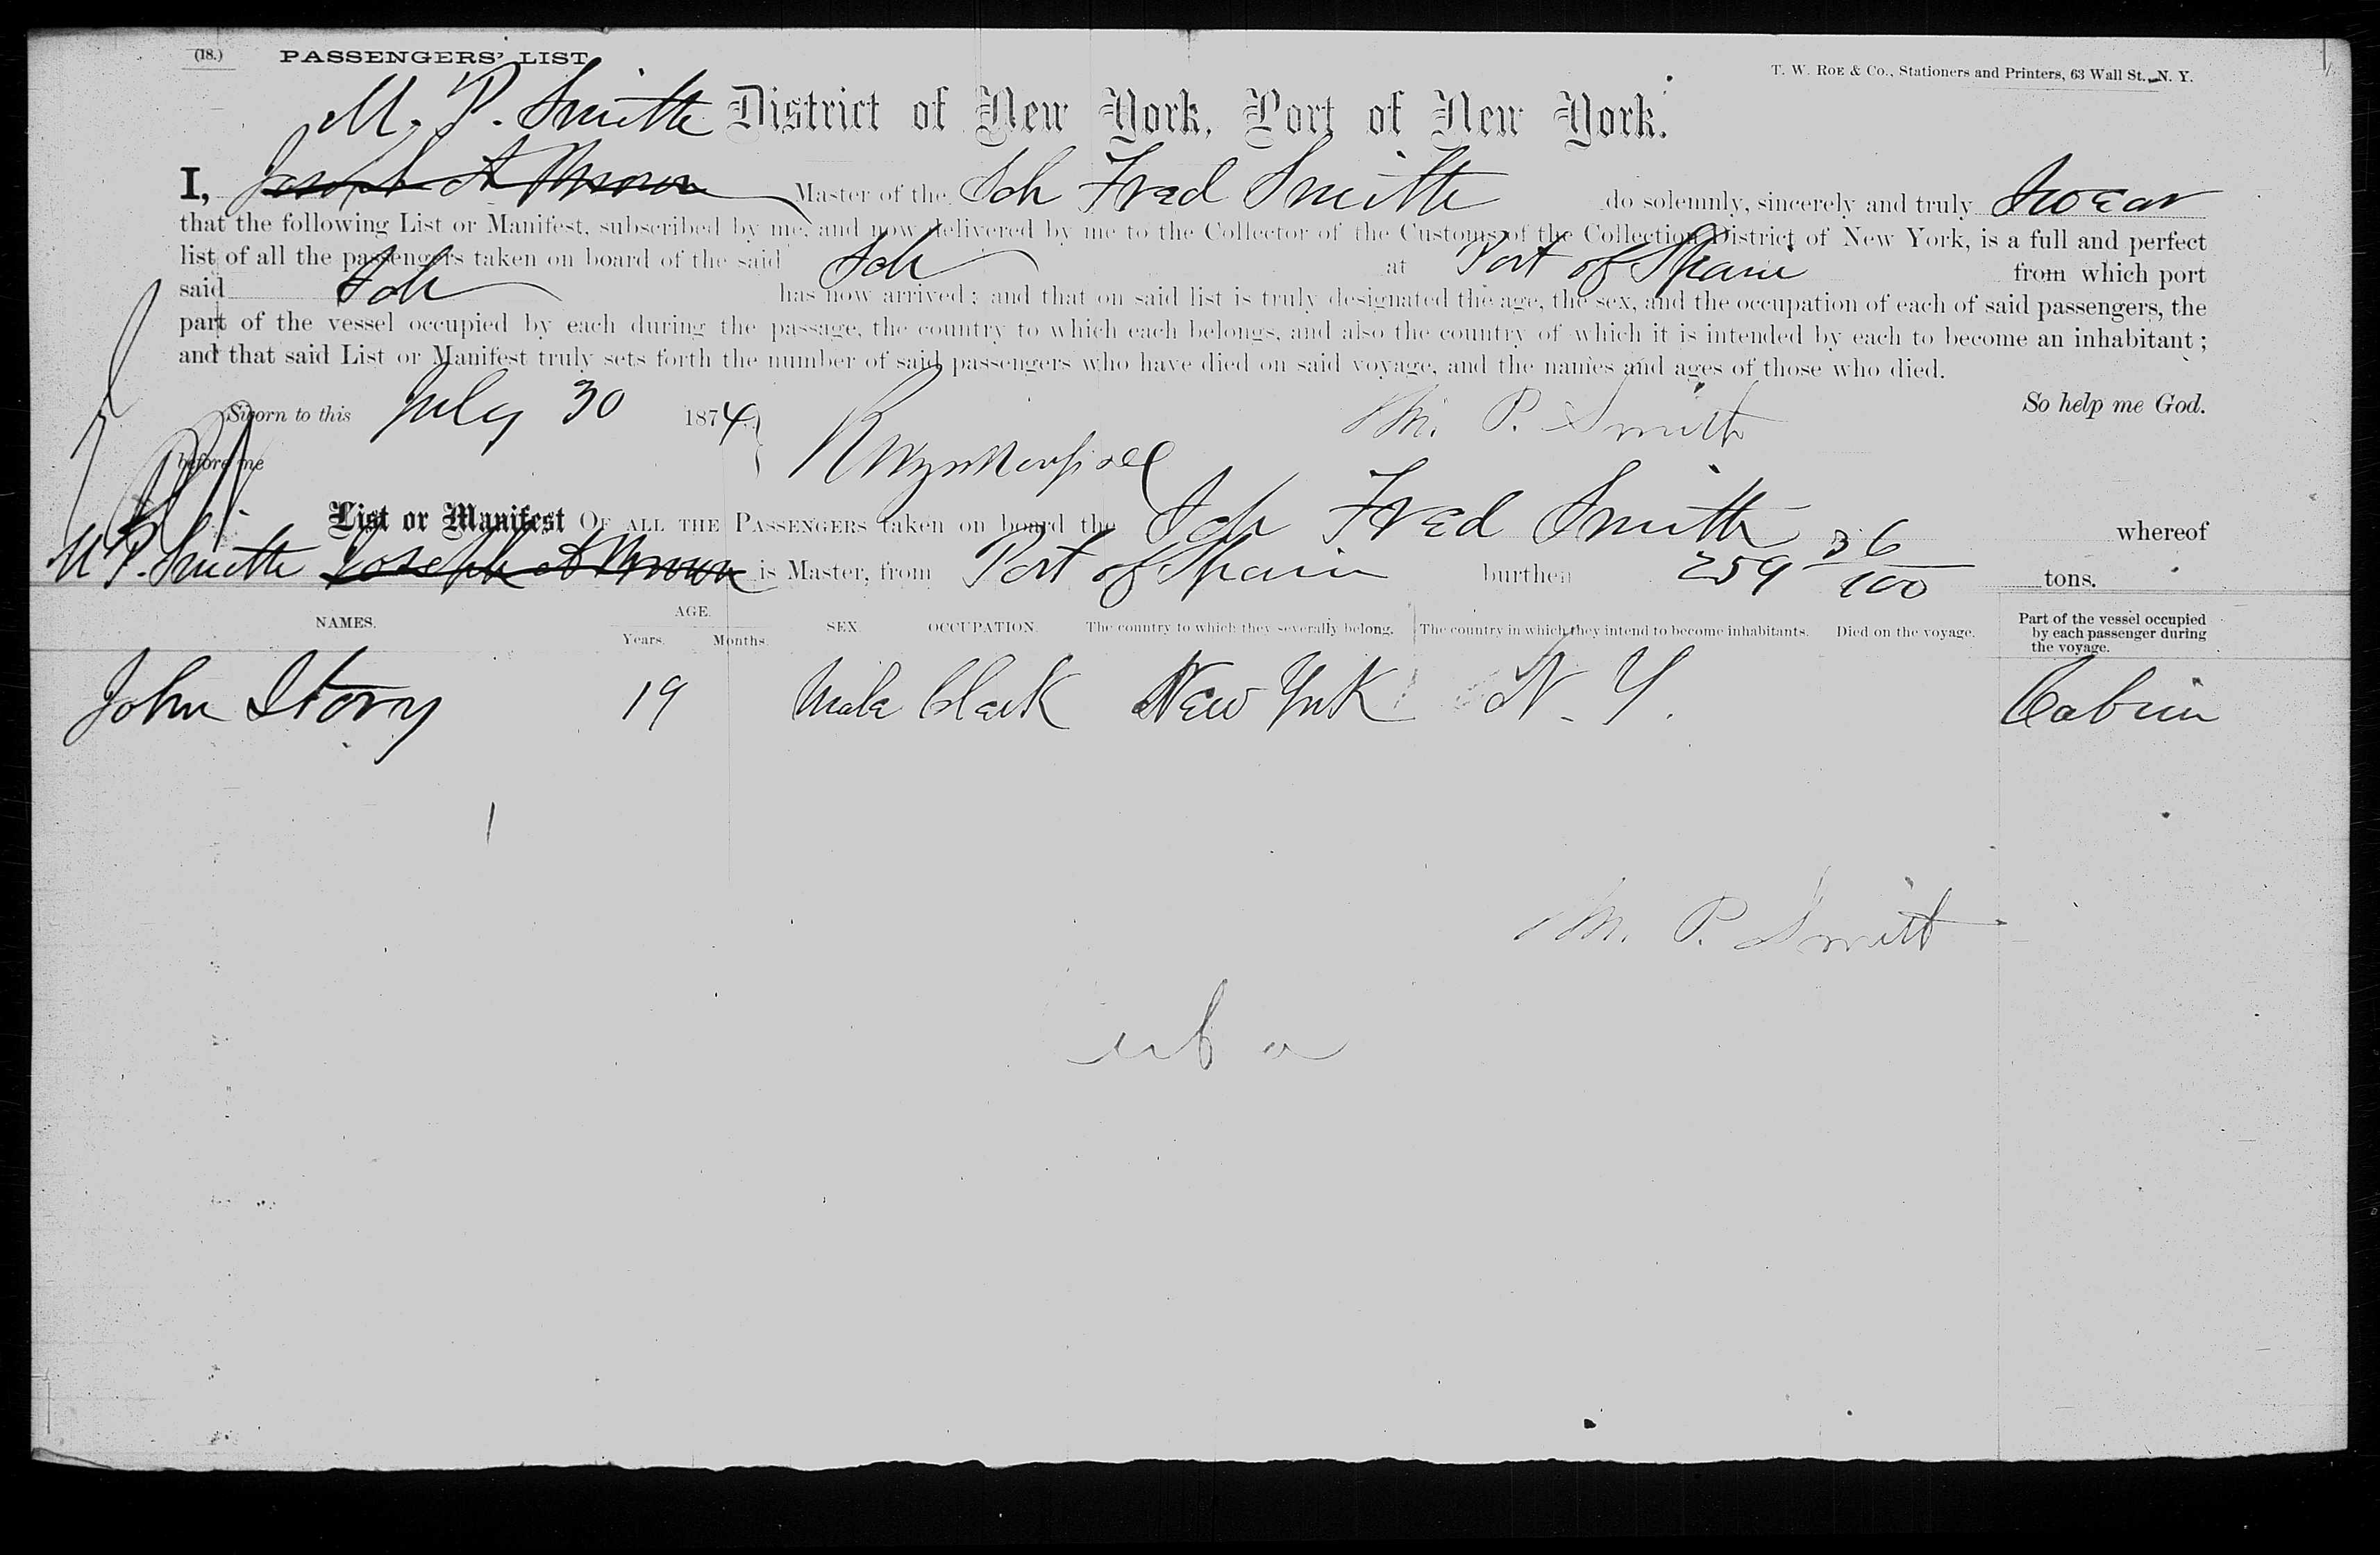 (18.) PASSENGERS' LIST T. W. ROE & CO., Stationers and Printers, 63 Wall St., N. Y.
M. P. Smith District of New York, Port of New York.
I, Joseph A Master of the Sch Fred Smith do solemnly, sincerely and truly Swear
that the following List or Manifest, subscribed by me, and now delivered by me to the Collector of the Customs of the Collection District of New York, is a full and perfect
list of all the passengers taken on board of the said Sch at Port of Spain from which port
said Sch has now arrived; and that on said list is truly designated the age, the sex, and the occupation of each of said passengers, the
part of the vessel occupied by each during the passage, the country to which each belongs, and also the country of which it is intended by each to become an inhabitant;
and that said List or Manifest truly sets forth the number of said passengers who have died on said voyage, and the names and ages of those who died.
Sworn to this July 30 1874 M. P. Smith So help me God.
before me
List or Manifest OF ALL THE PASSENGERS taken on board the Sch Fred Smith whereof
M P. Smith Joseph A is Master, from Port of Spain burthen 259 36/100 tons.
NAMES. AGE. Years. Months. SEX. OCCUPATION. The country to which they severally belong. The country in which they intend to become inhabitants. Died on the voyage. Part of the vessel occupied by each passenger during the voyage.
John Storry 19 Male Clerk New York N. Y. Cabin
1
M. P. Smith